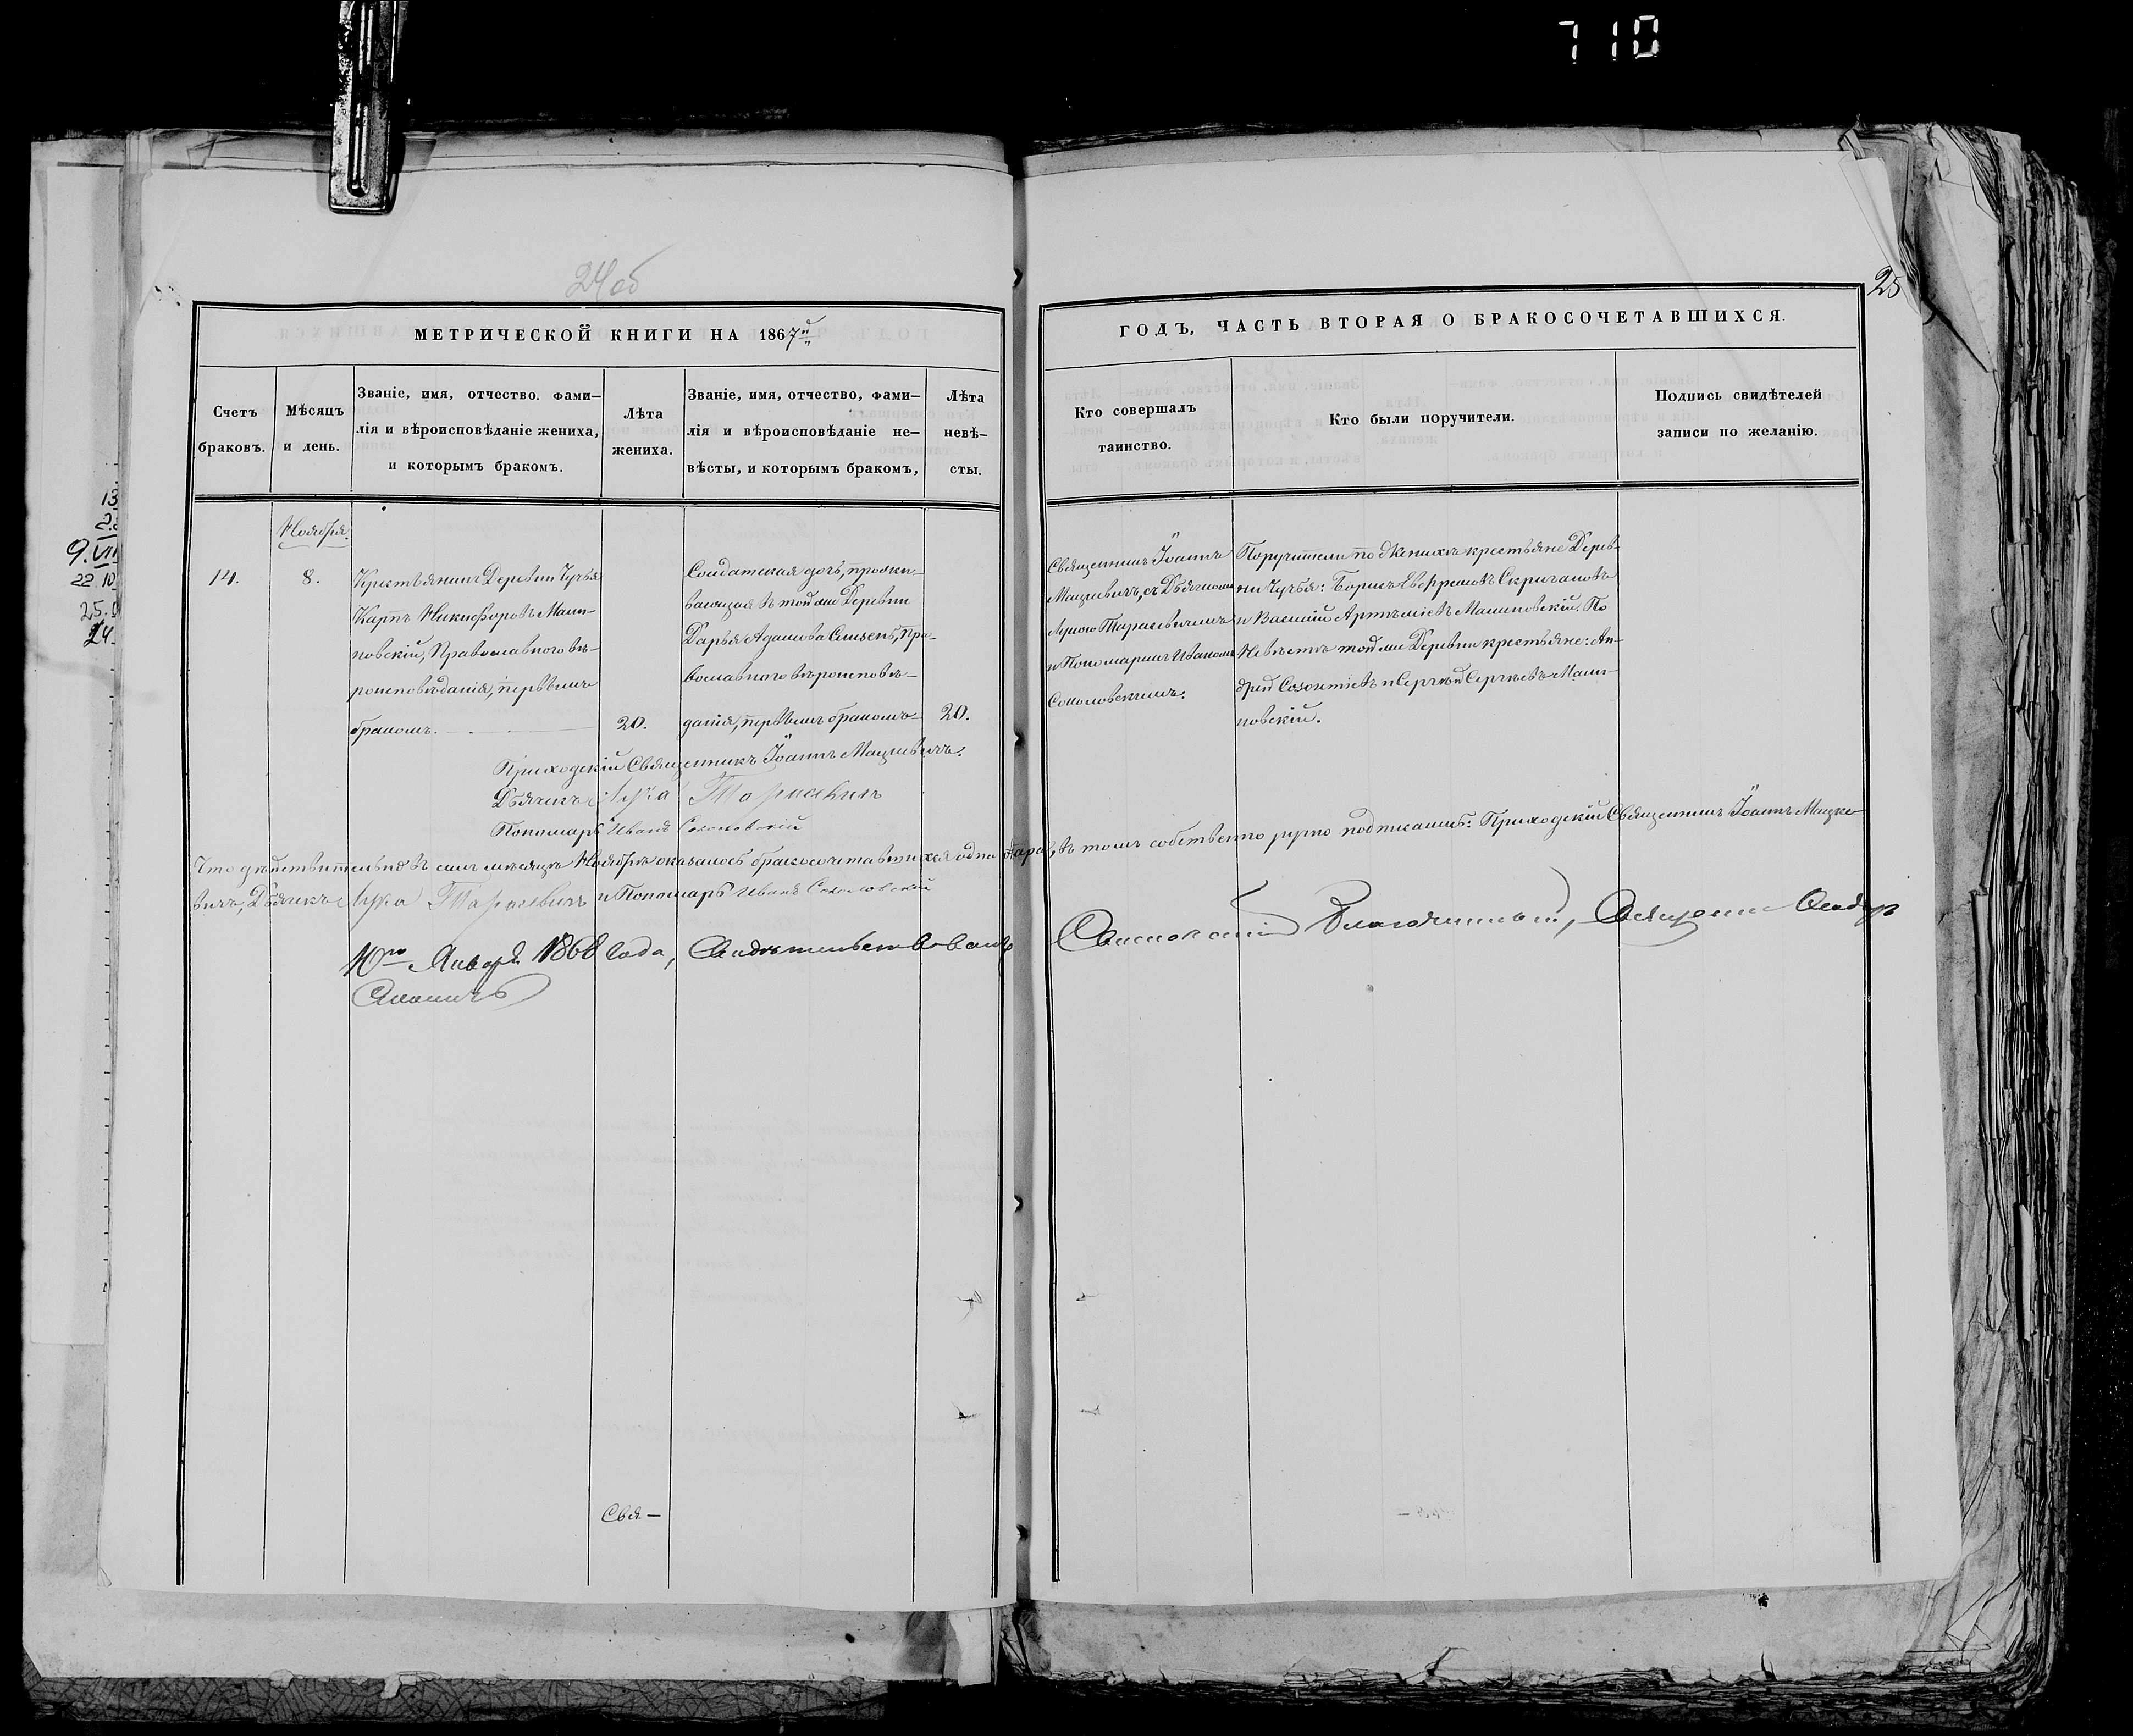 710
24об
25
МЕТРИЧЕСКОЙ КНИГИ НА 1867й
Счетъ
браковъ.
Мѣсяцъ
и день.
Званіе, имя, отчество. фами—
лія и вѣроисповѣданіе жениха,
и которымъ бракомъ.
Лѣта
жениха.
Званіе, имя, отчество, фами—
лія и вѣроисповѣданіе не—
вѣсты, и которымъ бракомъ,
Лѣта
невѣ—
сты.
ГОДЪ, ЧАСТЬ ВТОРАЯ О БРАКОСОЧЕТАВШИХСЯ.
Кто совершалъ
таинство.
Кто были поручители.
Подпись свидѣтелей
записи по желанію.
Ноября.
14.
8.
Крестьянинъ Деревни Чучья
Карпъ Никифоровъ Мали-
новскій, Православнаго вѣ-
роисповѣданія, первымъ
бракомъ.
20.
Солдатская дочь, прожи-
вающая въ той же Деревни
Дарья Адамова, Пра-
вославнаго вѣроисповѣ-
данія, первымъ бракомъ
20.
Священникъ Іоаннъ
Мацкевичъ, съ Дьячкомъ
Лукою Тарасевичемъ
и Пономаремъ Иваномъ
Соколовскимъ.
Поручители по Женихѣ крестьяне Дерев-
ни Чучья: Борисъ Евфремовъ Скригановъ
и Василій Артеміевъ Малиновскій. По
Невѣстѣ той же Деревни крестьяне: Ан-
дрей Созонтіевъ и Сергѣй Сергѣевъ Мали-
новскій.
Приходскій Священникъ Іоаннъ Мацкевичъ.
Дьячекъ Лука Тарасевичъ
Пономарь Иванъ Соколовскій
Что дѣйствительно въ семъ мѣсяцѣ Ноябрѣ оказалось бракосочетавшихся одна пара, въ томъ собственно ручно подписались: Приходскій Священникъ Іоаннъ Мацке-
вичъ, Дьячекъ Лука Тарасевичъ и Пономарь Иванъ Соколовскій
10го Января 1868 Года, Свидѣтельствовалъ Благочинный, Священникъ
Свя—